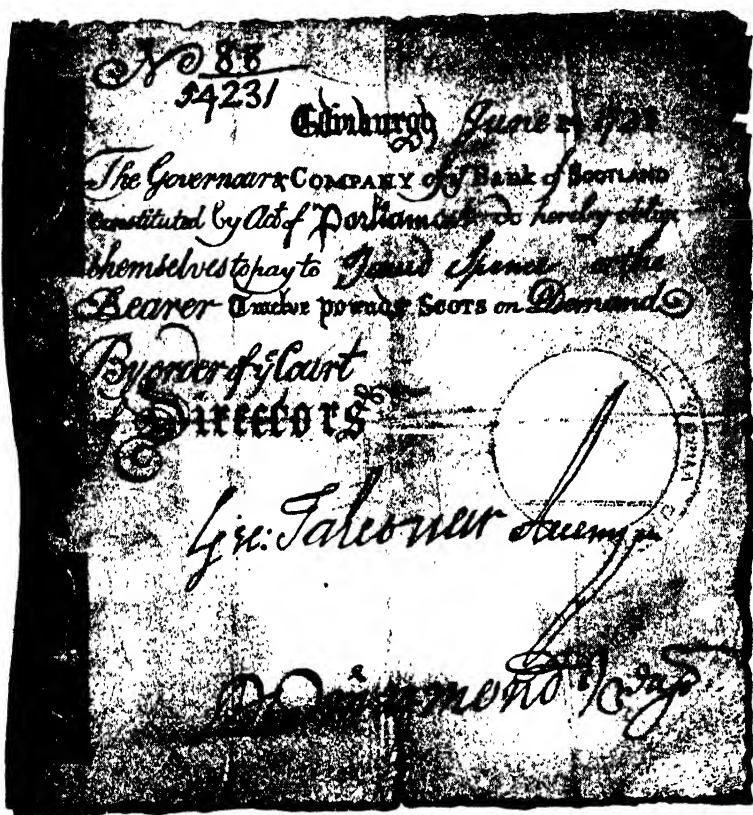 No 88
54231
Edinburgh June
The Governour & COMPANY of yͤ Bank of SCOTLAND
Constituted by Act of Parliament do hereby oblige
themselves to pay to David Spence or the
Bearer Twelve pounds SCOTS on Demand
By order of yͤ Court
of Directors
Geo: Falconar
Drummond
SEAL